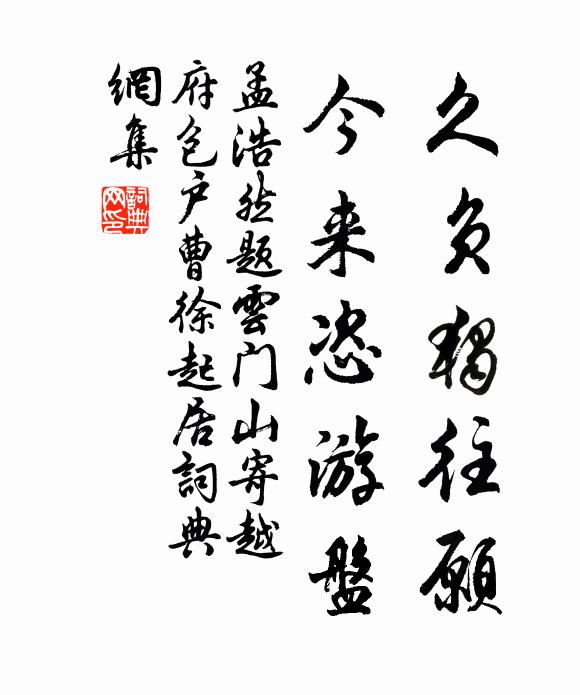 久負獨往願
今来恣游盤
孟浩然題雲门山寄越
府包户曹徐起居詞典
網集
詞典网印